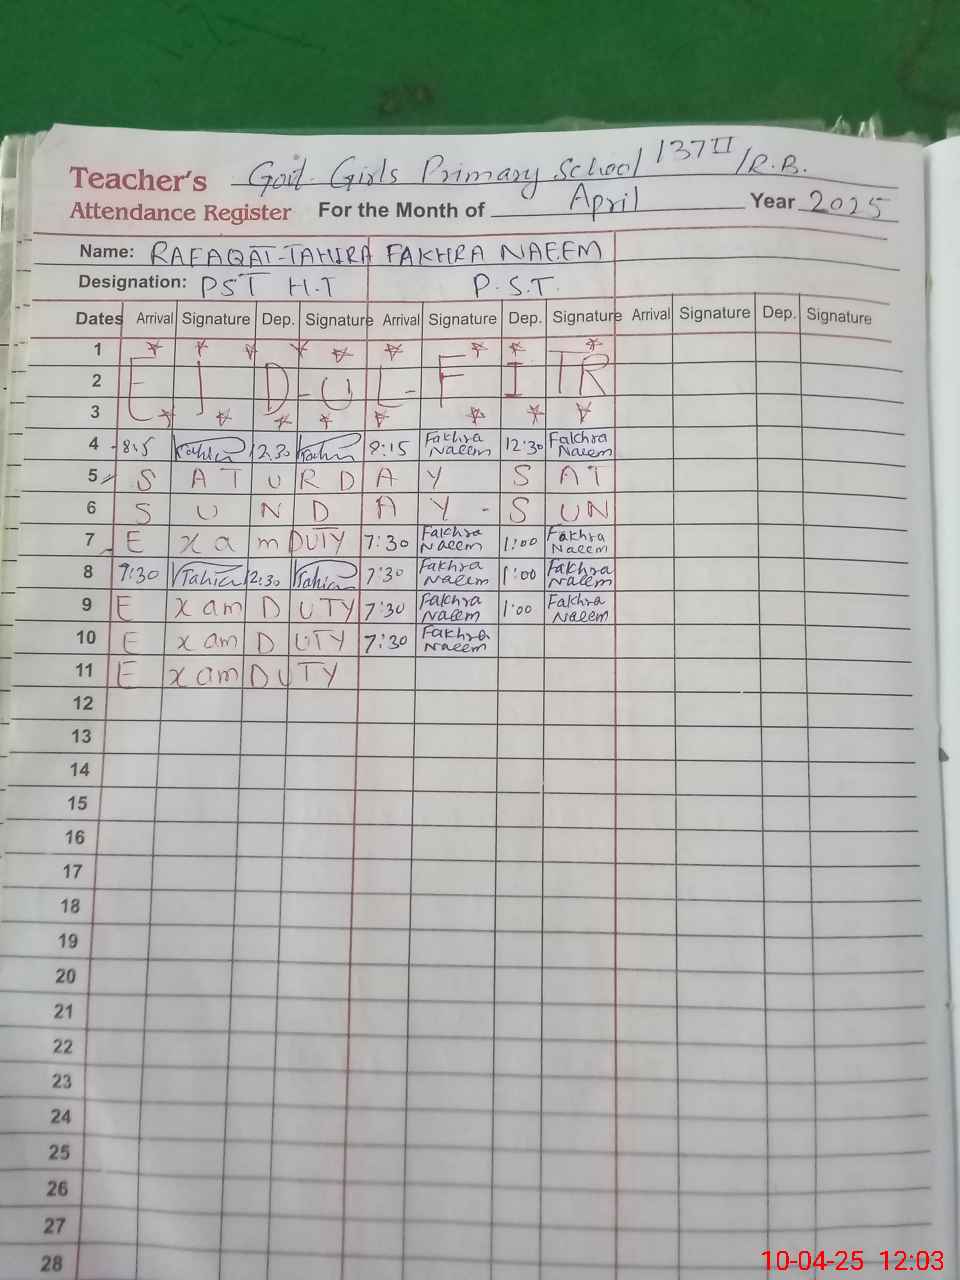 Teacher's Govt. Girls Primary School 137 II/R.B.
Attendance Register For the Month of April Year 2025
Name: RAFAQAT-TAHIRA FAKHRA NAEEM
Designation: PST H.T P.S.T.
Dates Arrival Signature Dep. Signature Arrival Signature Dep. Signature Arrival Signature Dep. Signature
1
2 EID-UL-FITR
3
4 8:5 Tahira 12.30 Tahira 8:15 Fakhra Naeem 12:30 Fakhra Naeem
5 SATURDAY SAT
6 SUNDAY - SUN
7 Exam DUTY 7:30 Fakhra Naeem 1:00 Fakhra Naeem
8 7:30 Tahira 2:30 Tahira 7:30 Fakhra Naeem 1:00 Fakhra Naeem
9 Exam DUTY 7:30 Fakhra Naeem 1:00 Fakhra Naeem
10 Exam DUTY 7:30 Fakhra Naeem
11 Exam DUTY
12
13
14
15
16
17
18
19
20
21
22
23
24
25
26
27
28
10-04-25 12:03